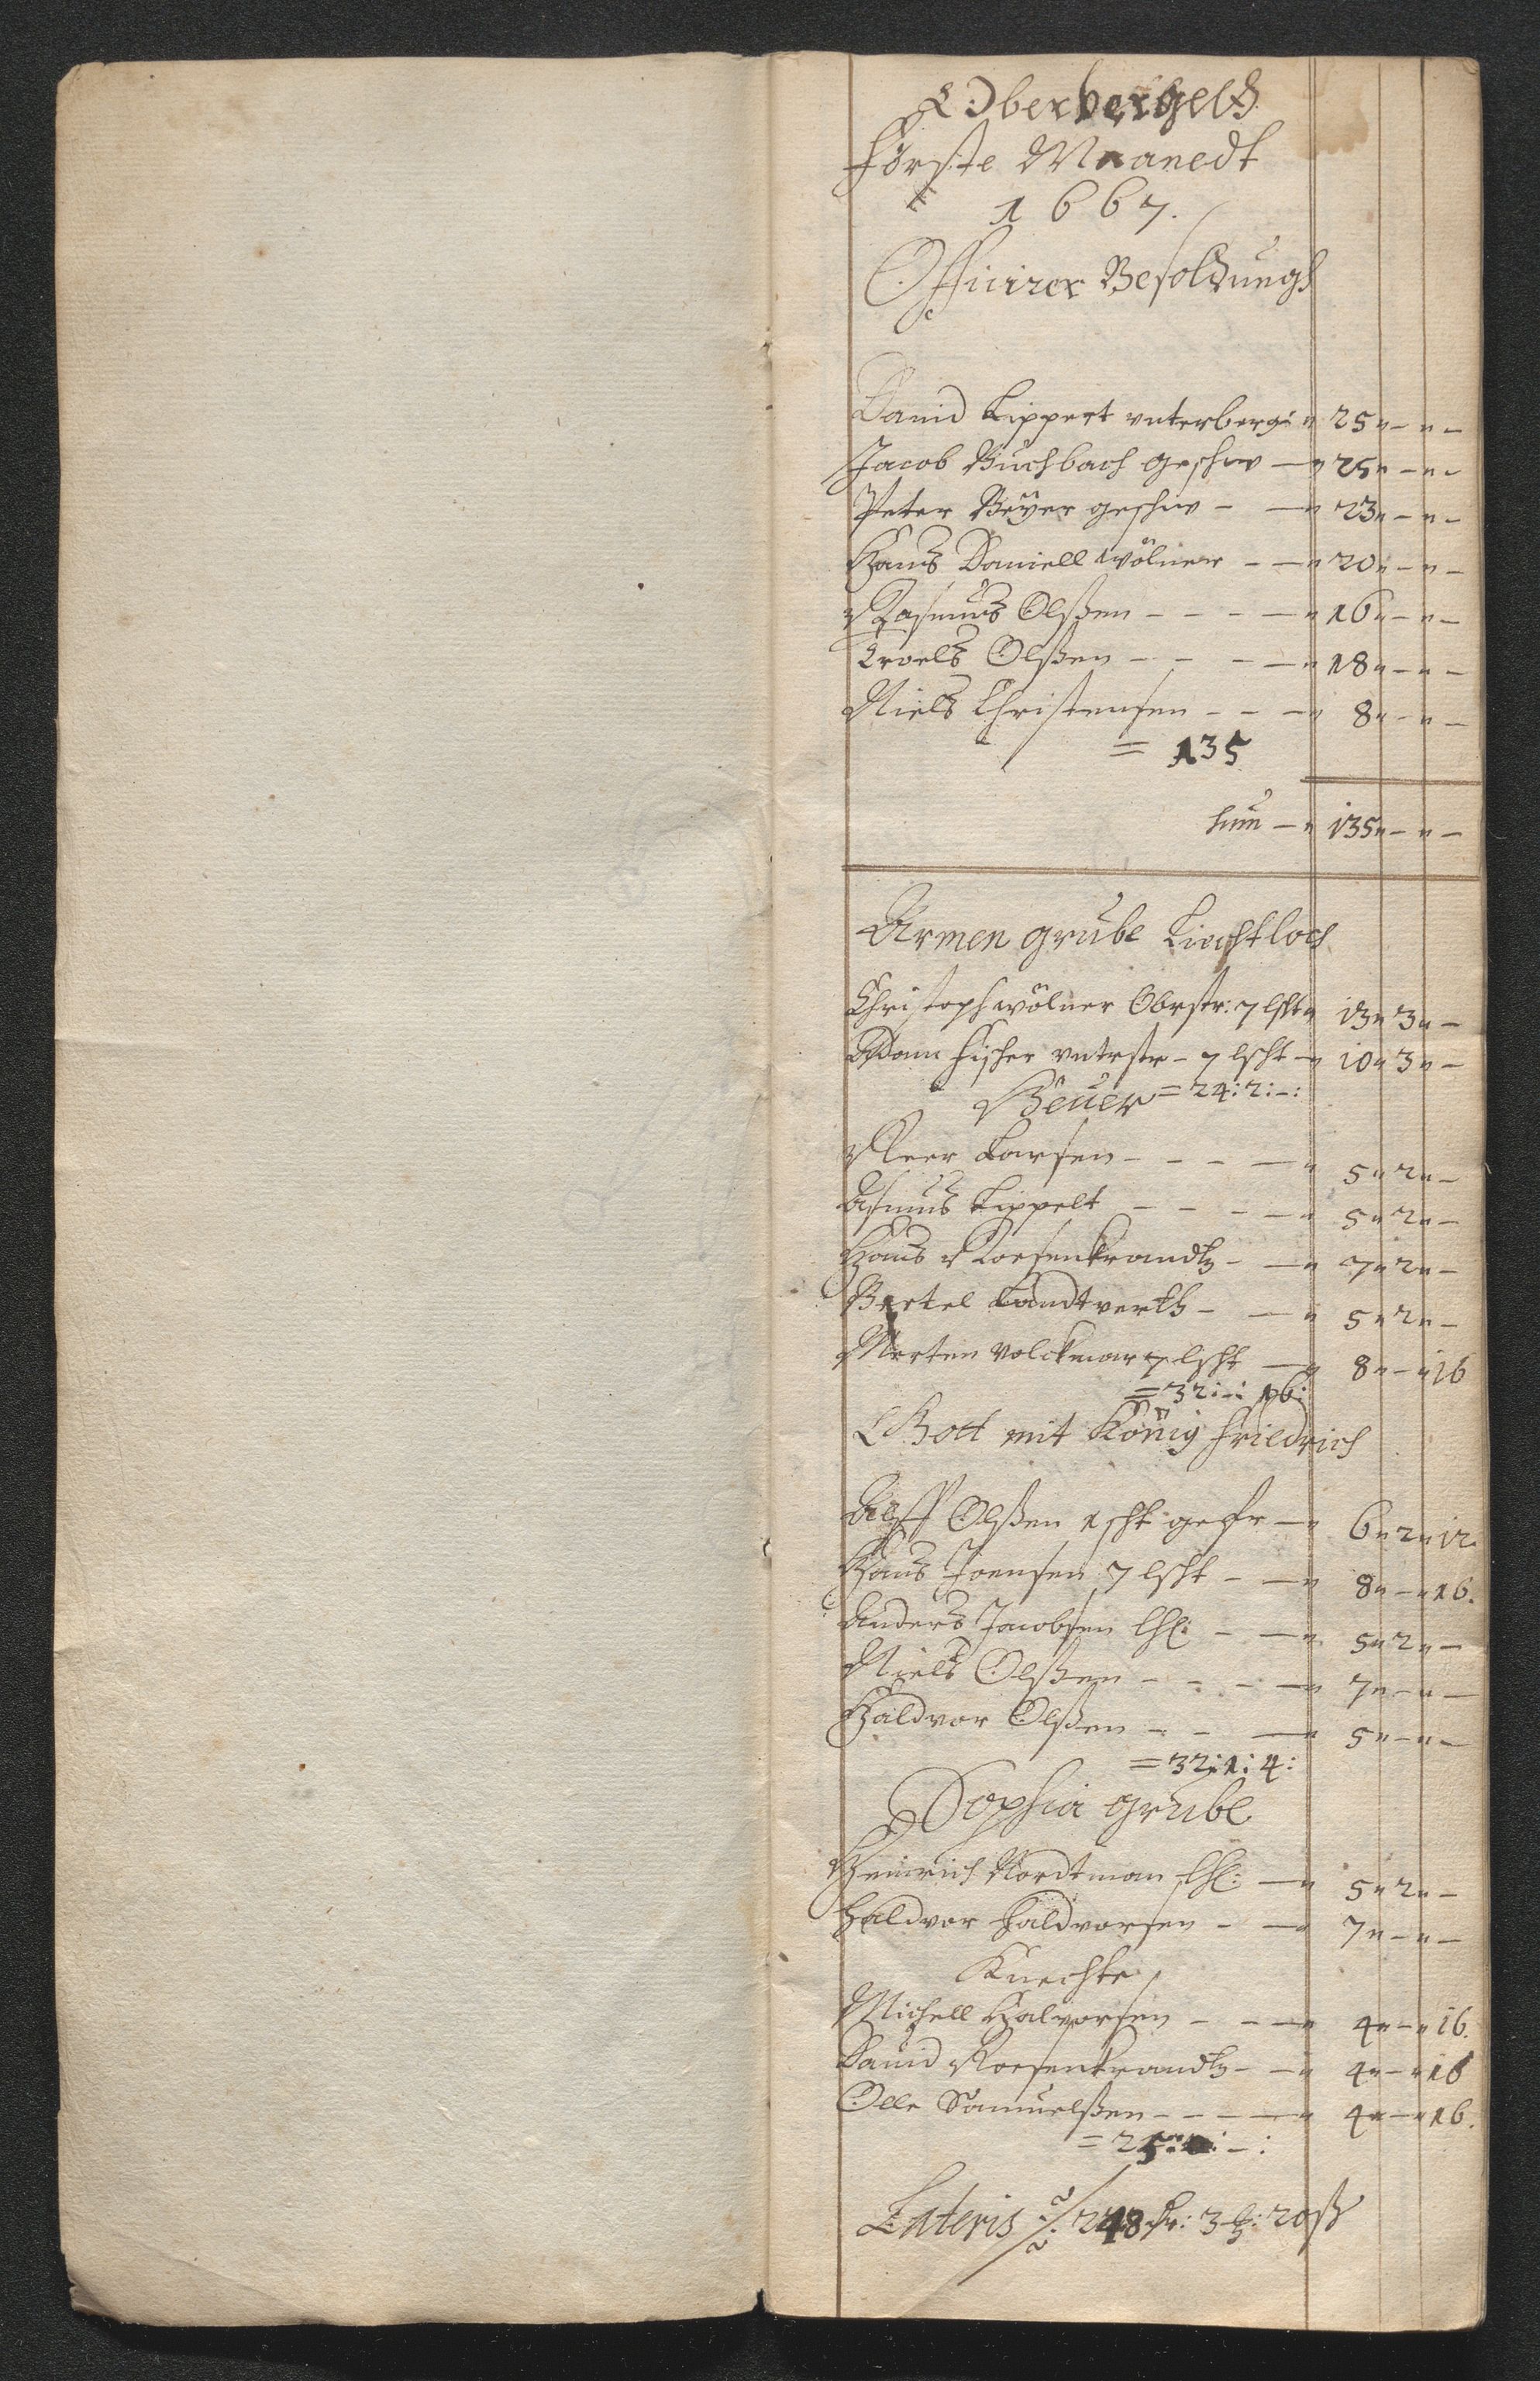 Oberbergels
Förste Maanedt
1667.
Officirer Besoldungh
David Lippert unterberg: " 25 " - " -
Jacob Buchbach geschw — " 25 " - " -
Peter Beyer geschw - — " 23 " - " -
Hans Daniell wölner - — " 20 " - " -
Rasmus Olßen - - - — " 16 " - " -
Troels Olßen - - - — " 18 " - " -
Niels Christensen - - — " 8 " - " -
= 135
Sum — " 135 " - " -
Armen grube Liechtloch
Christoph wölner Obrstr: 7 lsht " 13 " 3 " -
Adam Fischer untrstr - 7 lscht — " 10 " 3 " -
Heuer = 24:2:-:
Peer Larsen - - - — " 5 " 2 " -
Asmus Lippelt - - - — " 5 " 2 " -
Hans Roesenkrandtz - — " 7 " 2 " -
Bertel Landtverth - — " 5 " 2 " -
Morten Volckmar 7 lscht — " 8 " - " 16
= 32:-: 16:
Gott mit König Friedrich
Alff Olßen 1 scht gefr — " 6 " 2 " 12
Hans Joensen 7 lscht - — " 8 " - " 16.
Anders Jacobsen lhl: - — " 5 " 2 " -
Niels Olßen - - - — " 7 " - " -
Haldvor Olßen - - — " 5 " - " -
= 32:1:4:
Sophia grube
Heinrich Nordtman lhl: — " 5 " 2 " -
Haldvor Haldvorsen - — " 7 " - " -
Knechte
Michell Halvorsen - - — " 4 " - " 16.
David Roesenkrandtz - — " 4 " - " 16
Olle Samuelßen - - - — " 4 " - " 16.
= 25: :-:
Lateris ./. 248 Dr: 3 : 20 ß